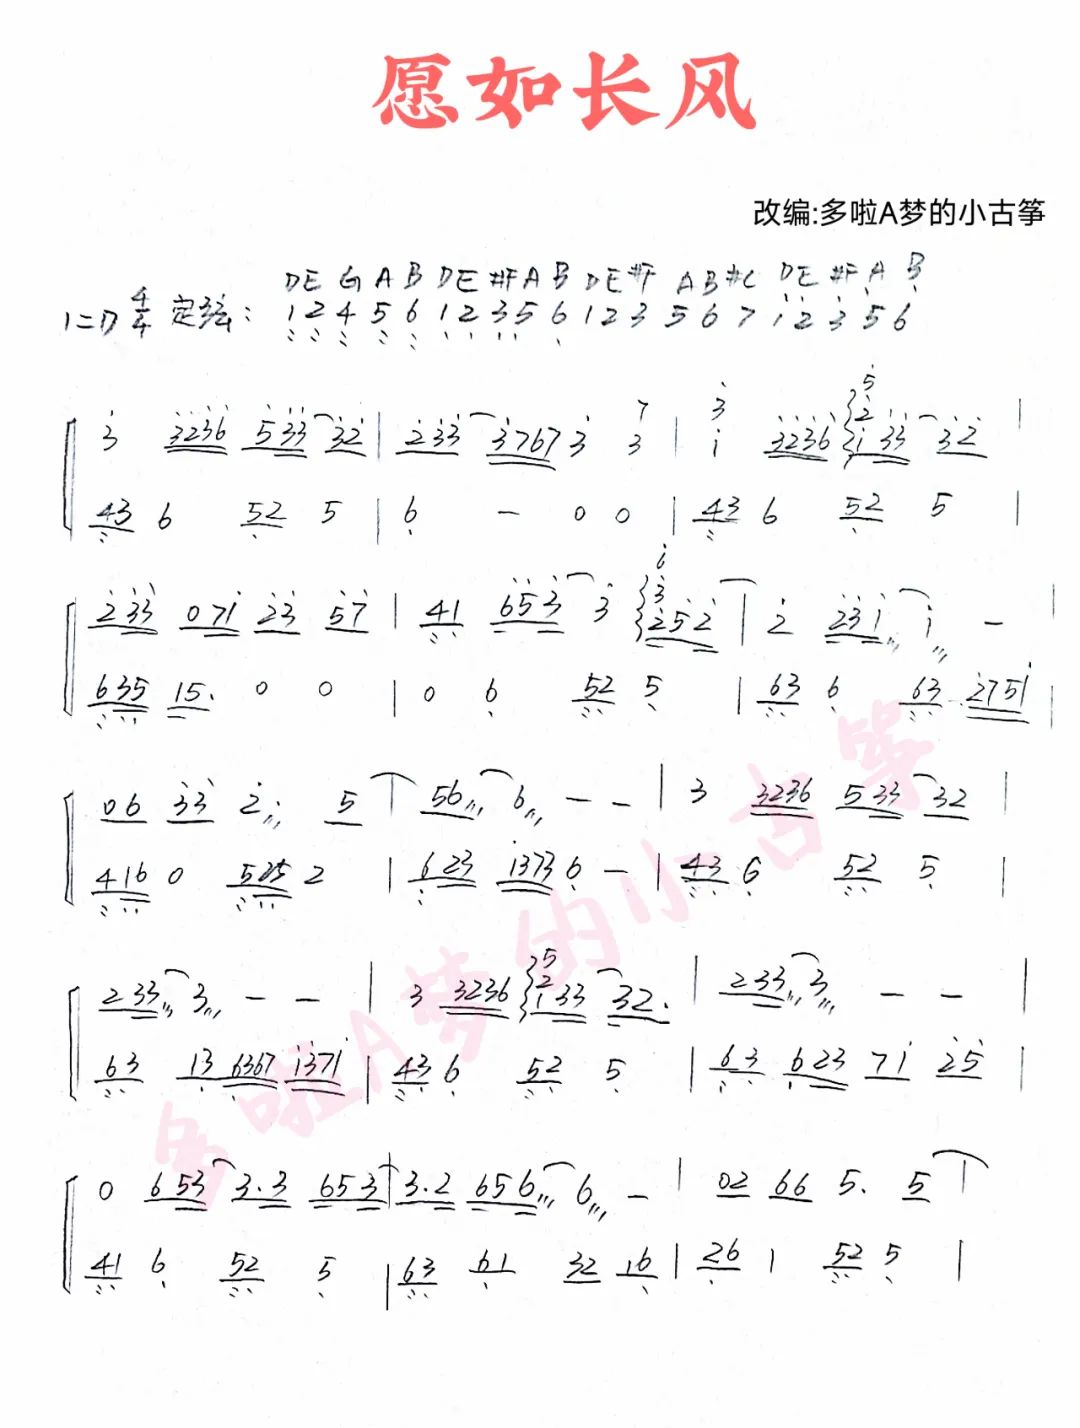 愿如长风
改编:多啦A梦的小古筝
DE G A B DE #F A B DE #F A B #C DE #F A B
1=D 4/4 定弦: 1 2 4 5 6 1 2 3 5 6 1 2 3 5 6 7 1 2 3 5 6
5
7 3 2
3 3236 533 32 | 233 3767 3 3 | 1 3236 133 32 |
43 6 52 5 | 6 - 0 0 | 43 6 52 5 |
6
3
233 071 23 57 | 41 653 3 252 | 2 231 1 -
635 15. 0 0 | 0 6 52 5 | 63 6 63 2751 |
06 33 2 5 | 56 6 - - | 3 3236 533 32 |
416 0 2 | 623 1373 6 - | 43 6 52 5 |
5
2
233 3 - - | 3 3236 133 32. | 233 3 - - |
63 13 6367 1371 | 43 6 52 5 | 63 623 71 25 |
0 653 3.3 653 | 3.2 656 6 - | 02 66 5. 5 |
41 6 52 5 | 63 61 32 16 | 26 1 52 5 |
多啦A梦的小古筝